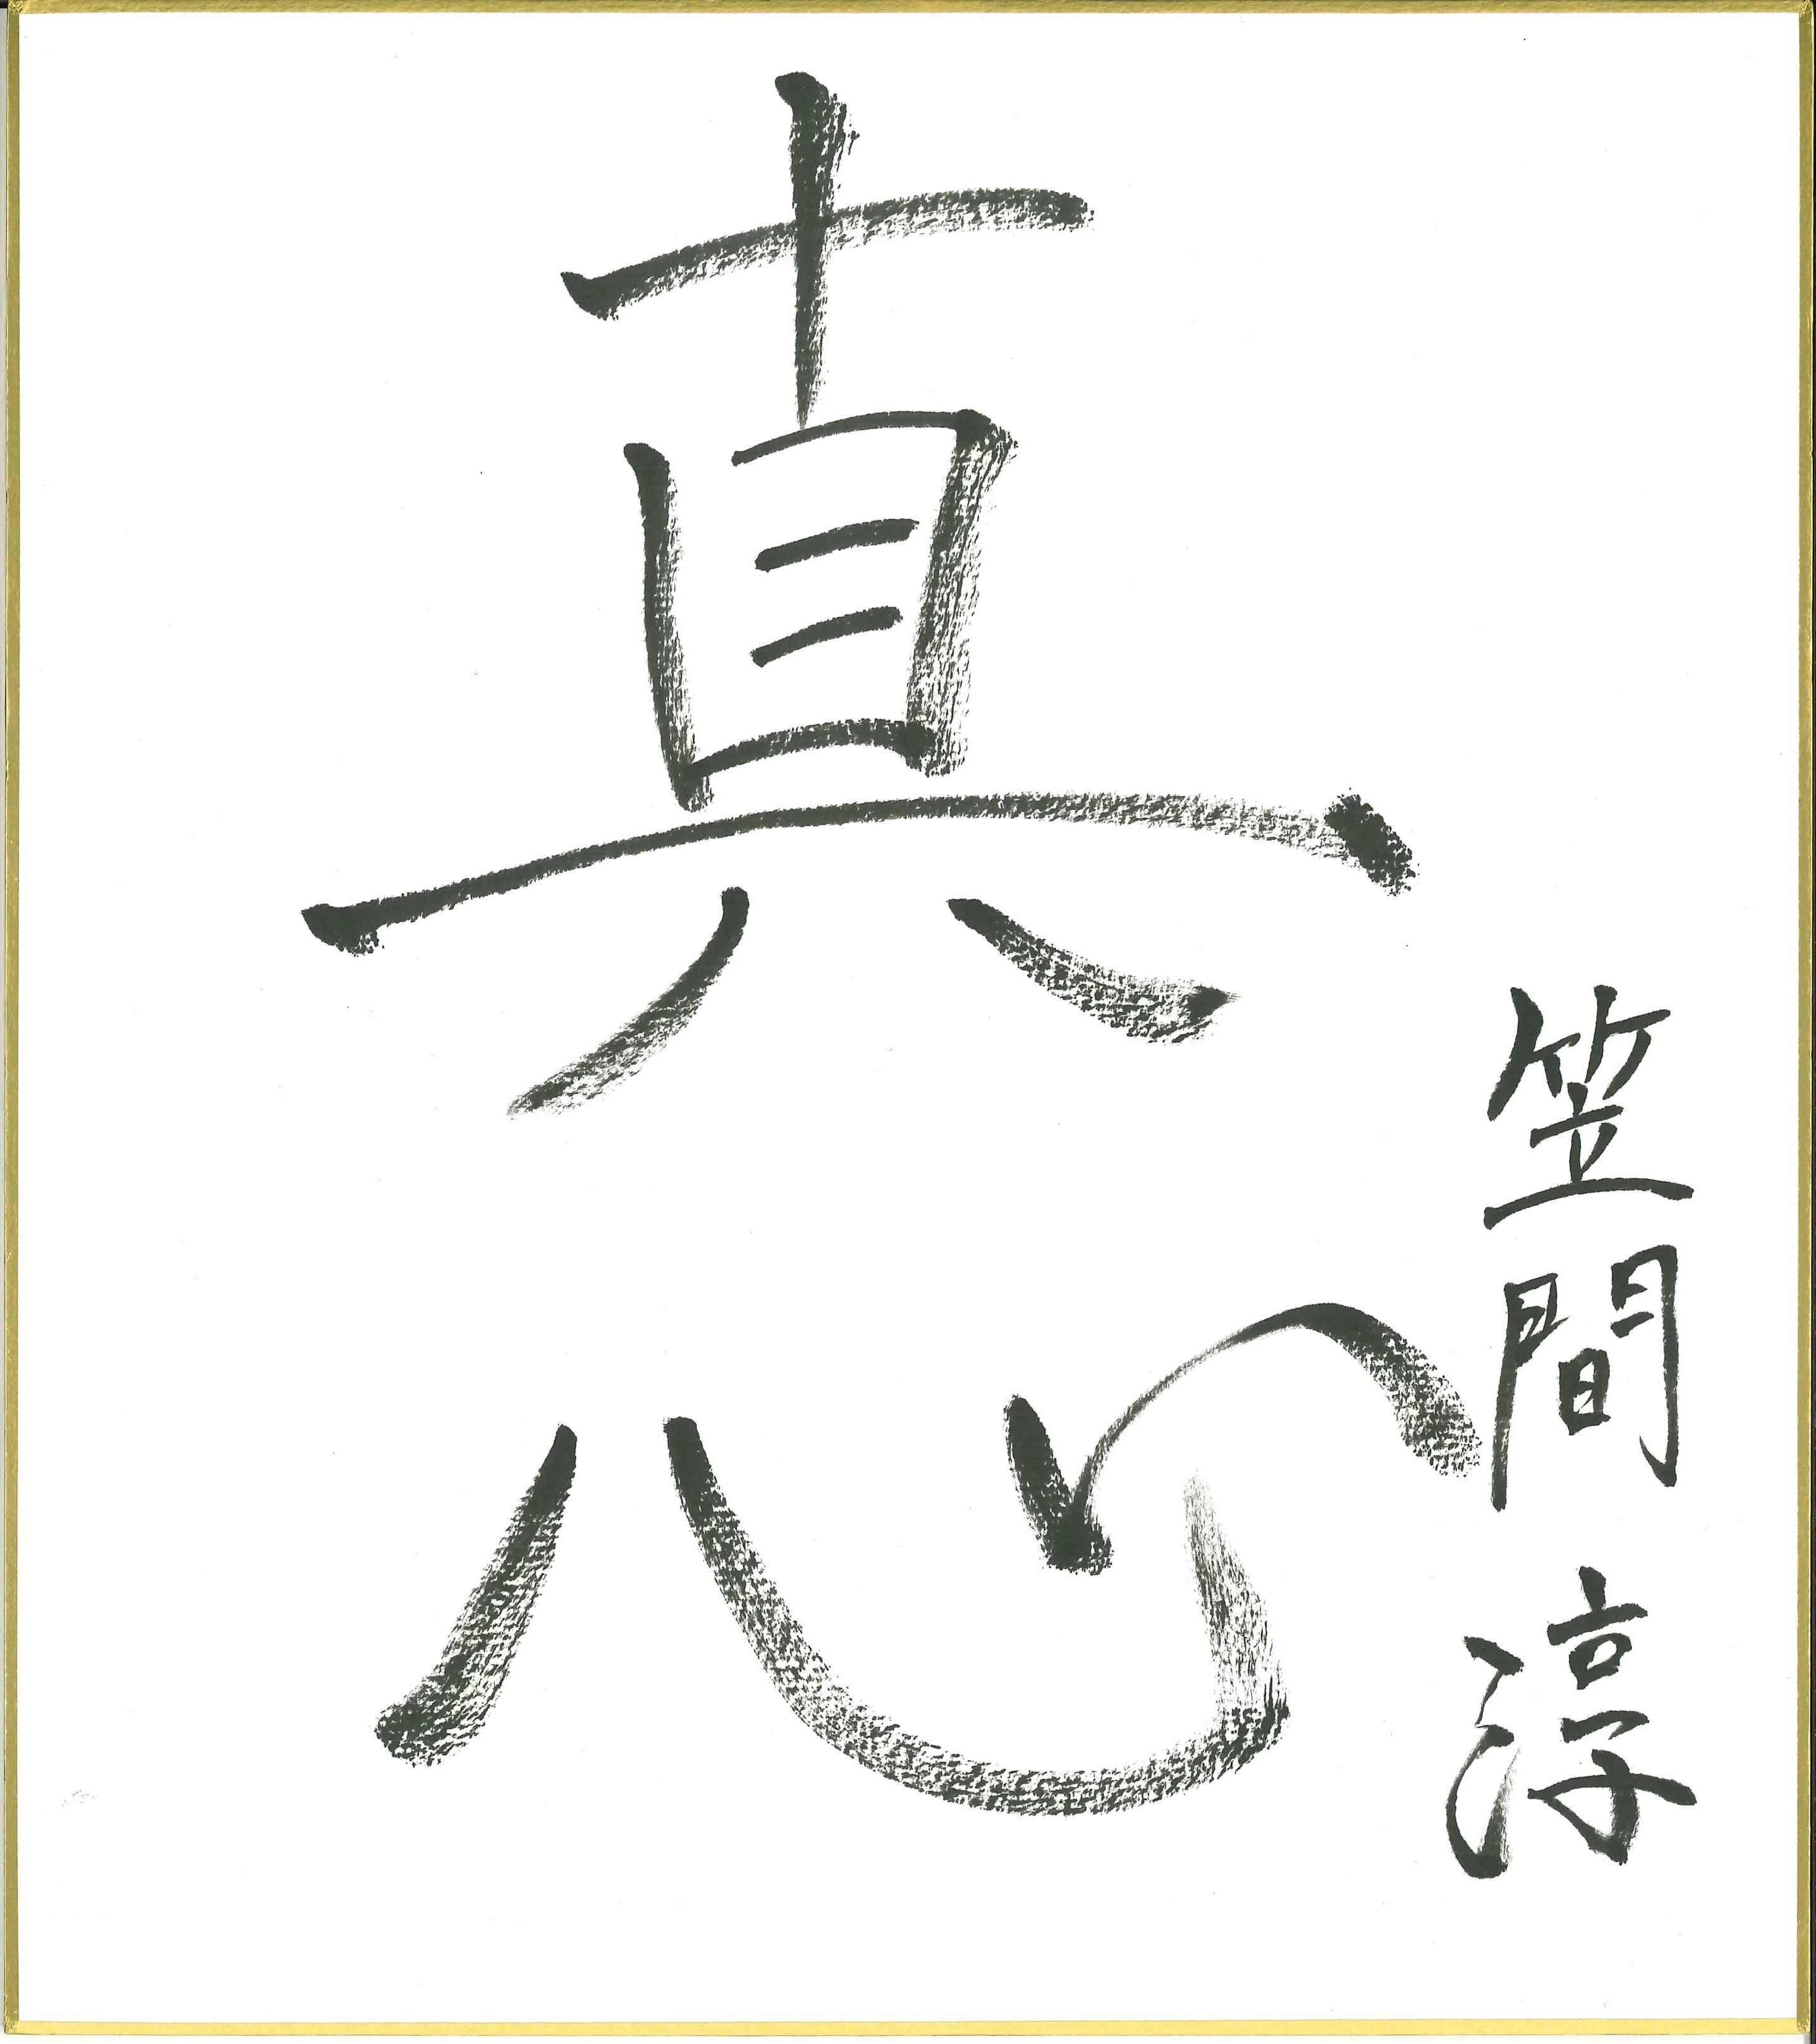 真心
笠間淳